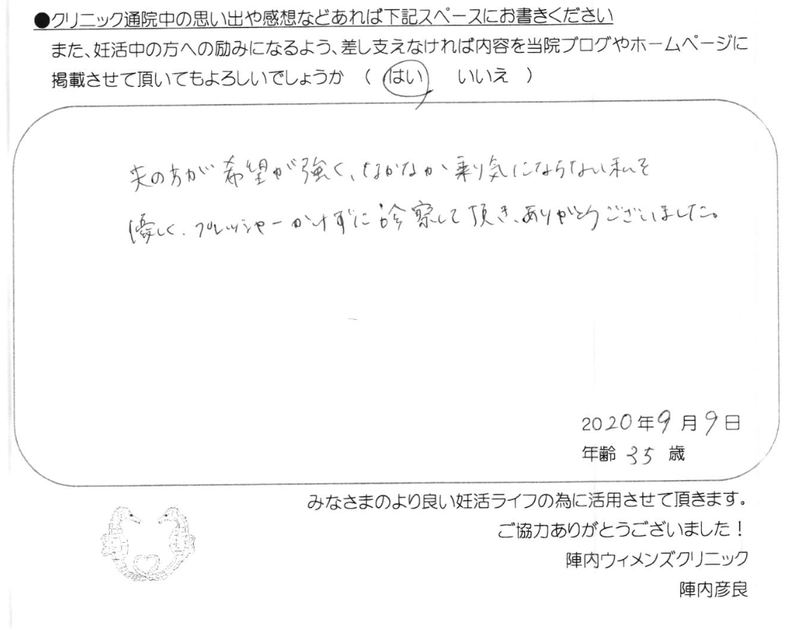 ●クリニック通院中の思い出や感想などあれば下記スペースにお書きください
また、妊活中の方への励みになるよう、差し支えなければ内容を当院ブログやホームページに
掲載させて頂いてもよろしいでしょうか （ はい いいえ ）
夫の方が希望が強く、なかなか乗り気にならない私を
優しく、プレッシャーかけずに診察して頂き、ありがとうございました。
2020年9月9日
年齢 35 歳
みなさまのより良い妊活ライフの為に活用させて頂きます。
ご協力ありがとうございました！
陣内ウィメンズクリニック
陣内彦良